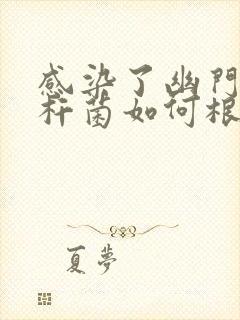 感染了幽門
杆菌如何根
夏夢